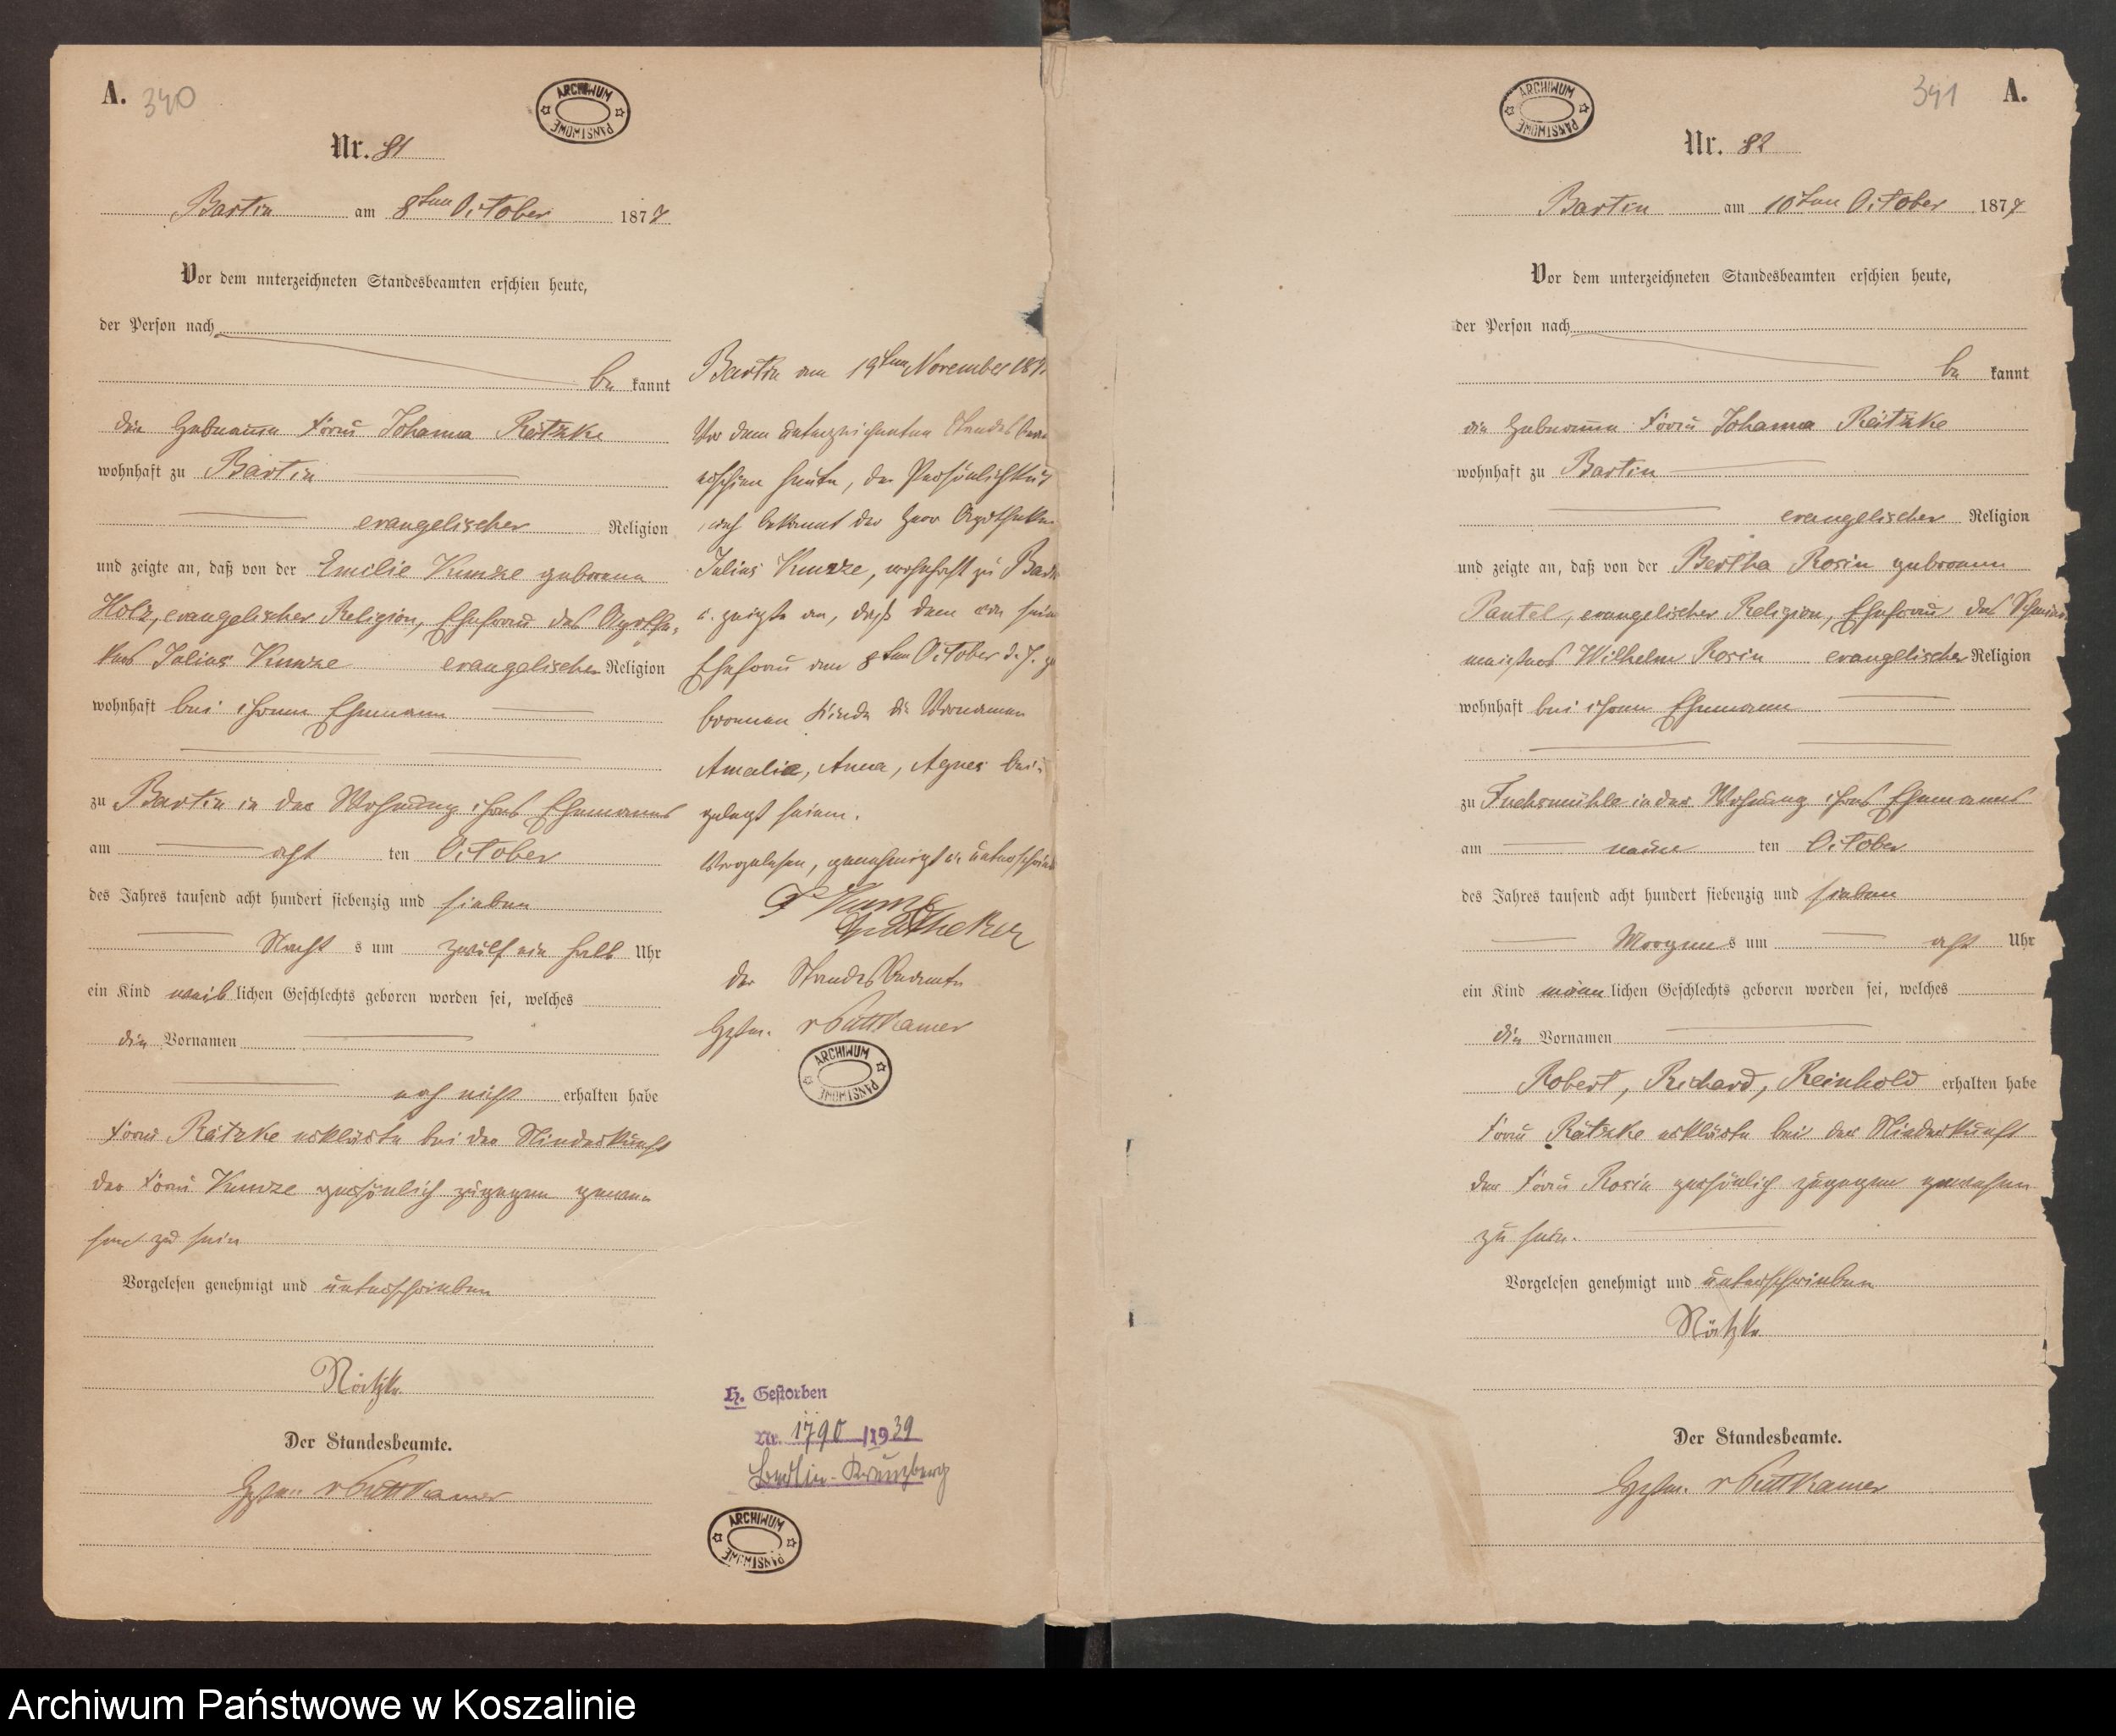 A. 340
ARCHIWUM PAŃSTWOWE
Nr. 81
Bartin am 8ten October 1877
Vor dem unterzeichneten Standesbeamten erschien heute,
der Person nach
be kannt
die Hebamme Frau Johanna Rätzke
wohnhaft zu Bartin
evangelischer Religion
und zeigte an, daß von der Emilie Kunze geborene
Holz, evangelischer Religion, Ehefrau des Apothe-
kers Julius Kunze evangelischer Religion
wohnhaft bei ihrem Ehemann
zu Bartin in der Wohnung ihres Ehemannes
am acht ten October
des Jahres tausend acht hundert siebenzig und sieben
Nacht s um zwölf ein halb Uhr
ein Kind weib lichen Geschlechts geboren worden sei, welches
die Vornamen
noch nicht erhalten habe
Frau Rätzke erklärte bei der Niederkunft
der Frau Kunze persönlich zugegen gewe
sen zu sein
Vorgelesen genehmigt und unterschrieben
Rätzke
Der Standesbeamte.
v Puttkamer
Bartin am 19ten November 187
Vor dem unterzeichneten Standesbeam
erschien heute, der Persönlichkeit
nach bekannt der Herr Apotheker
Julius Kunze, wohnhaft zu Barti
u. zeigte an, daß dem von sein
Ehefrau am 8ten October d. J. ge
borenen Kinde die Vornamen
Amalie, Anna, Agnes bei-
gelegt seien.
Vorgelesen, genehmigt u. unterschrieb
Kunze
Apotheker
Der Standesbeamte
v Puttkamer
ARCHIWUM PAŃSTWOWE
H. Gestorben
Nr. 1790 /1939
Berlin-Kreuzberg
ARCHIWUM PAŃSTWOWE
341 A.
ARCHIWUM PAŃSTWOWE
Nr. 82
Bartin am 10ten October 1877
Vor dem unterzeichneten Standesbeamten erschien heute,
der Person nach
be kannt
die Hebamme Frau Johanna Rätzke
wohnhaft zu Bartin
evangelischer Religion
und zeigte an, daß von der Bertha Rosin geborenen
Pantel, evangelischer Religion, Ehefrau des
meisters Wilhelm Rosin evangelischer Religion
wohnhaft bei ihrem Ehemann
zu Fuchsmühle in der Wohnung ihres Ehemannes
am neun ten October
des Jahres tausend acht hundert siebenzig und sieben
Morgens um acht Uhr
ein Kind männ lichen Geschlechts geboren worden sei, welches
die Vornamen
Robert, Richard, Reinhold erhalten habe
Frau Rätzke erklärte bei der Niederkunft
der Frau Rosin persönlich zugegen gewesen
zu sein.
Vorgelesen genehmigt und unterschrieben
Rätzke
Der Standesbeamte.
v Puttkamer
Archiwum Państwowe w Koszalinie